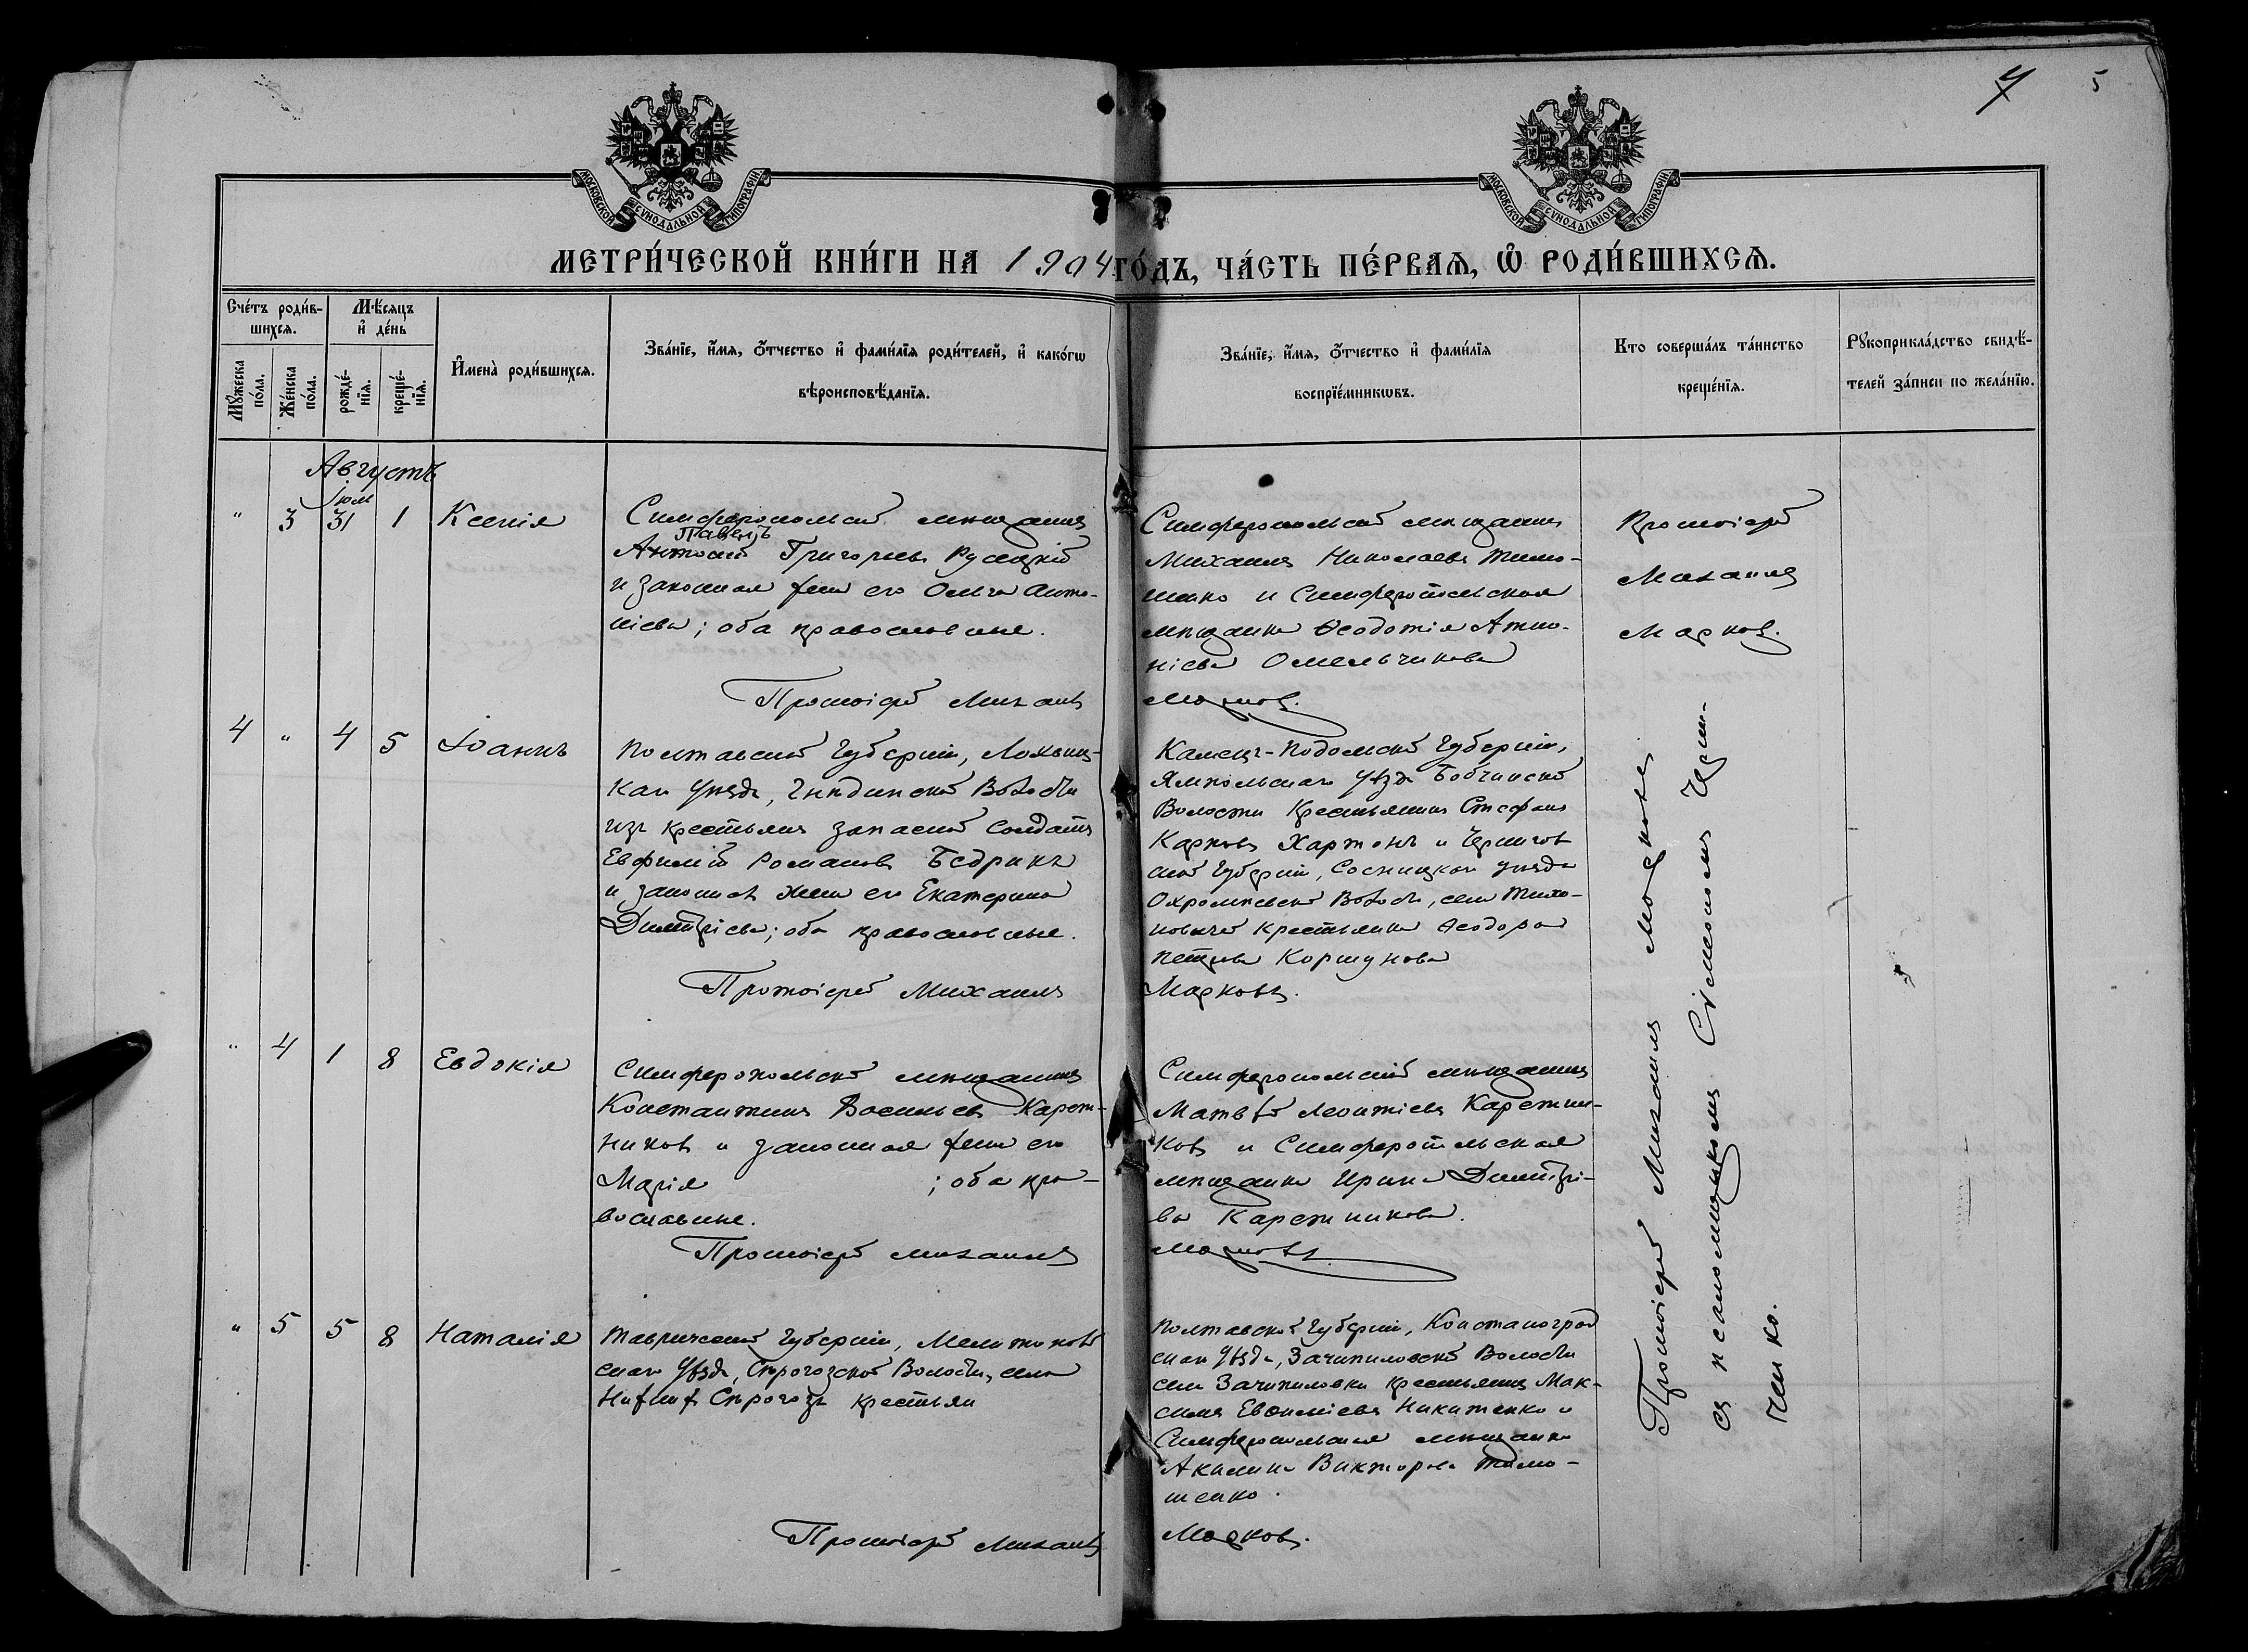 4 5
МОСКОВСКОЙ СѴНОДАЛЬНОЙ ТИПОГРАФІИ
МОСКОВСКОЙ СѴНОДАЛЬНОЙ ТИПОГРАФІИ
МЕТРИ́ЧЕСКОЙ КНИ́ГИ НА 1904 ГО́ДЪ, ЧА́СТЬ ПЕ́РВАЯ, Ѡ҆ РОДИ́ВШИХСѦ.
Сче́тъ роди́в-
шихсѧ.
Мꙋ́жеска
по́ла.
Же́нска
по́ла.
Мѣ́сѧцъ
и҆ де́нь
рожде́-
нїѧ.
креще́-
нїѧ.
И҆мена̀ роди́вшихсѧ.
Зва́нїе, и҆́мѧ, ѻ҆́тчество и҆ фами́лїѧ роди́телей, и҆ како́гѡ
вѣроисповѣ́данїѧ.
Зва́нїе, и҆́мѧ, ѻ҆́тчество и҆ фами́лїѧ
воспрїе́мникѡвъ.
Кто соверша́лъ та́инство
креще́нїѧ.
Рꙋкоприкла́дство свидѣ́-
телей за́писи по жела́нїю.
Августъ
Іюл
" 3 31 1 Ксенія
Симферопольскій мѣщанинъ
Павелъ
Антоній Григорьевъ Русецкій
и законная жена его Ольга Анто-
ніева; оба православные.
Протоіерей Михаилъ
Симферопольскій мѣщанинъ
Михаилъ Николаевъ Тимо-
шенко и Симферопольская
мѣщанка Ѳеодотія Анто-
ніева Омельчикова
Марковъ.
Протоіерей
Михаилъ
Марковъ.
4 " 4 5 Іоаннъ
Полтавской Губерніи, Лохвиц-
каго уѣзда, Гнѣдинской Волости
изъ крестьянъ запасной солдатъ
Евфимій Романовъ Бедрикъ
и законная жена его Екатерина
Димитріева; оба православные.
Протоіерей Михаилъ
Каменц-Подольской Губерніи,
Ямпольскаго уѣзда Бабчинской
Волости крестьянинъ Стефанъ
Карповъ Хартонъ и Чернигов
ской Губерніи, Сосницкаго уѣзда
Охромѣевской Волости, села Тихо-
новичей крестьянка Ѳеодора
Петрова Коршунова
Марковъ.
" 4 1 8 Евдокія
Симферопольскій мѣщанинъ
Константинъ Васильевъ Карет-
никовъ и законная жена его
Марія ; оба пра-
вославные.
Протоіерей Михаилъ
Симферопольскій мѣщанинъ
Матвѣй Леонтіевъ Каретни-
ковъ и Симферопольская
мѣщанка Ирина Димитріе-
ва Каретникова.
Марковъ.
" 5 5 8 Наталія
Таврической Губерніи, Мелитополь
скаго уѣзда, Сѣрогозской Волости, села
Нижнихъ Сѣрогозъ крестьян
Протоіерей Михаилъ
Полтавской Губерніи, Констаноград
скаго уѣзда, Зачипиловской Волости
села Зачипиловки крестьянинъ Мак-
симъ Евѳиміевъ Никитенко и
Симферопольская мѣщанка
Акилина Викторова Тимо-
шенко.
Марковъ.
Протоіерей Михаилъ Марковъ
съ псаломщикомъ Симеономъ Черни-
ченко.